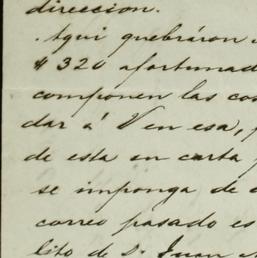 direccion.
Aqui quebráron
$320 afortunad
componen las cos
dar á V en esa,
de esta en carta
se imponga de
correo pasado es
lito de Dn Juan